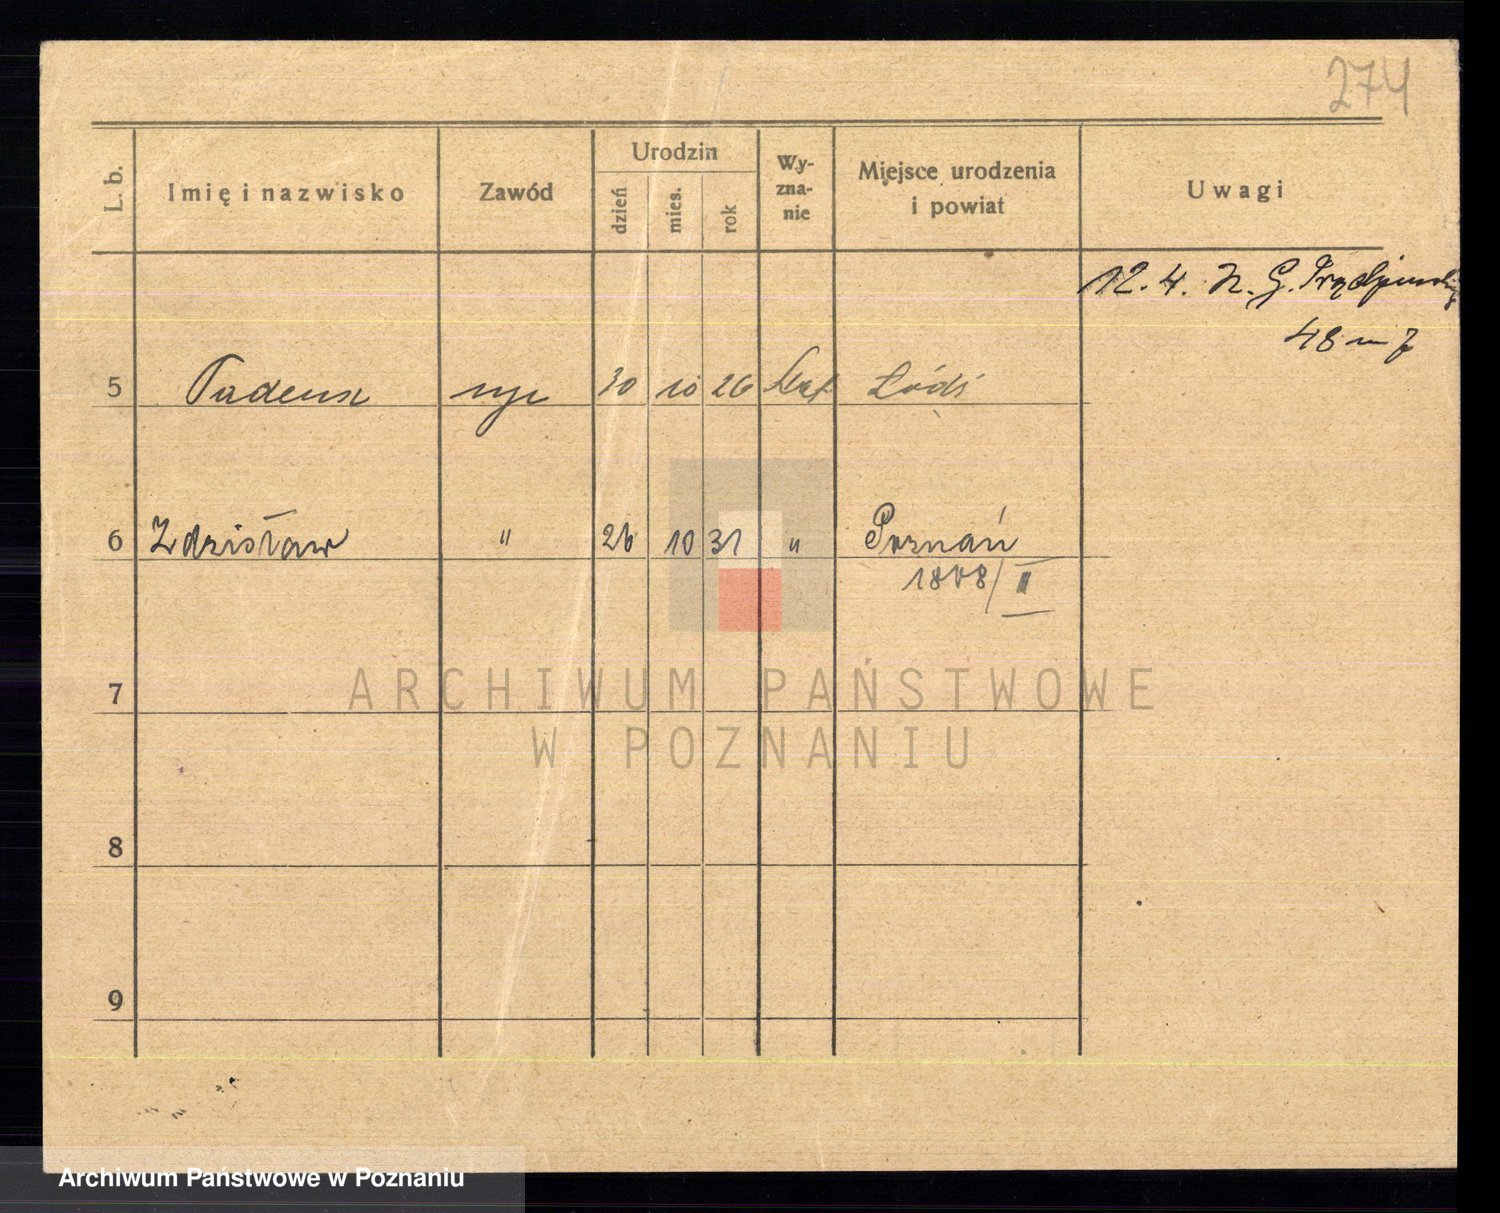 274
L. b.
Imię i nazwisko
Zawód
Urodzin
dzień
mies.
rok
Wy-
zna-
nie
Miejsce urodzenia
i powiat
Uwagi
12. 4. N. G.
48 m 7
5 Tadeusz 30 10 26 kat Łódź
6 Zdzisław " 26 10 31 " Poznań
/II
7
8
9
ARCHIWUM PAŃSTWOWE
W POZNANIU
Archiwum Państwowe w Poznaniu